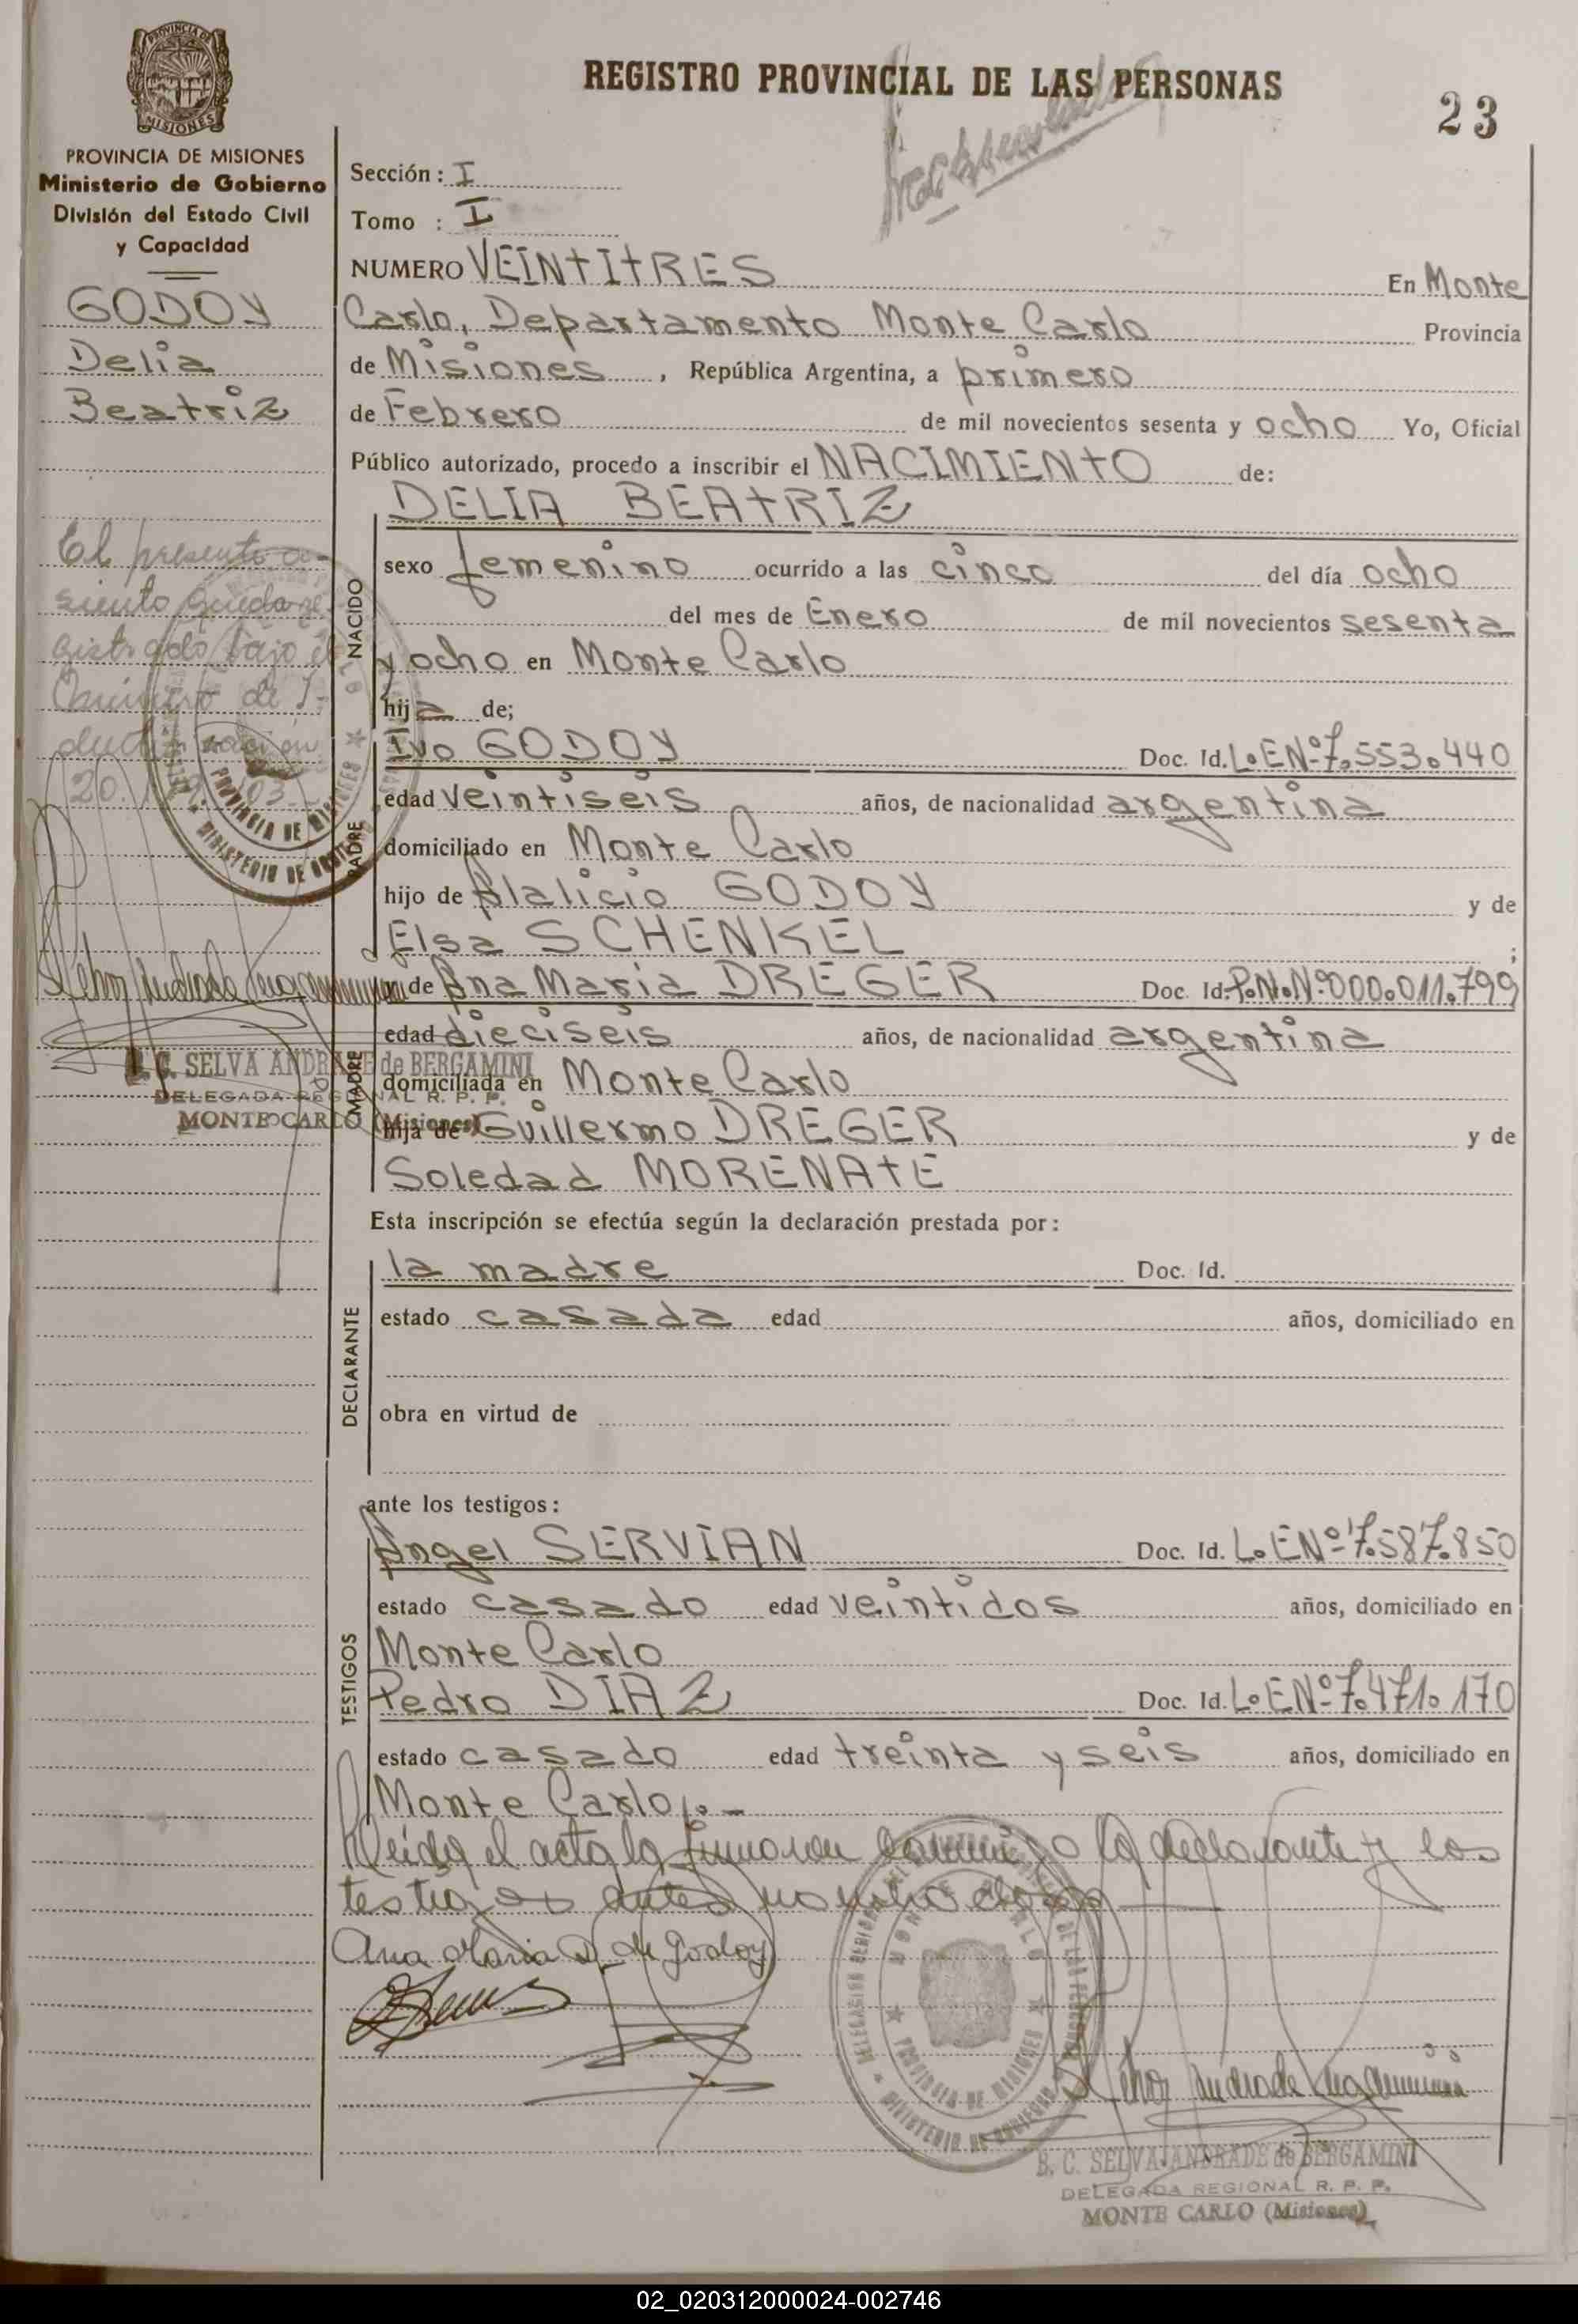 REGISTRO PROVINCIAL DE LAS PERSONAS
23
MISIONES
PROVINCIA DE MISIONES
Ministerio de Gobierno
División del Estado Civil
y Capacidad
GODOY
Delia
Beatriz
El presente a-
siento queda re-
gistrado bajo el
Número de I-
20.
B. C. SELVA ANDRADE de BERGAMINI
DELEGADA REGIONAL R. P. P.
MONTE CARLO (Misiones)
Sección: I
Tomo : I
NUMERO VEINTITRES En Monte
Carlo, Departamento Monte Carlo Provincia
de Misiones, República Argentina, a primero
de Febrero de mil novecientos sesenta y ocho Yo, Oficial
Público autorizado, procedo a inscribir el NACIMIENTO de:
DELIA BEATRIZ
NACIDO
sexo femenino ocurrido a las cinco del día ocho
del mes de Enero de mil novecientos sesenta
y ocho en Monte Carlo
hija de;
PADRE
Ivo GODOY Doc. Id. L.E.Nº 7.553.440
edad veintiseis años, de nacionalidad argentina
domiciliado en Monte Carlo
hijo de Alalicio GODOY y de
Elsa SCHENKEL ;
MADRE
y de Ana Maria DREGER Doc. Id. P.N.Nº 000.011.799
edad dieciseis años, de nacionalidad argentina
domiciliada en Monte Carlo
hija de Guillermo DREGER y de
Soledad MORENATE
Esta inscripción se efectúa según la declaración prestada por:
DECLARANTE
la madre Doc. Id.
estado casada edad años, domiciliado en
obra en virtud de
ante los testigos:
TESTIGOS
Angel SERVIAN Doc. Id. L.E.Nº 7.587.850
estado casado edad veintidos años, domiciliado en
Monte Carlo
Pedro DIAZ Doc. Id. L.E.Nº 7.471.170
estado casado edad treinta y seis años, domiciliado en
Monte Carlo.-
Leida el acta la firmaron conmigo la declarante y los
testigos antes nombrados
Ana Maria D. de Godoy
PROVINCIA DE MISIONES
MINISTERIO DE GOBIERNO
B. C. SELVA ANDRADE de BERGAMINI
DELEGADA REGIONAL R. P. P.
MONTE CARLO (Misiones)
02_020312000024-002746